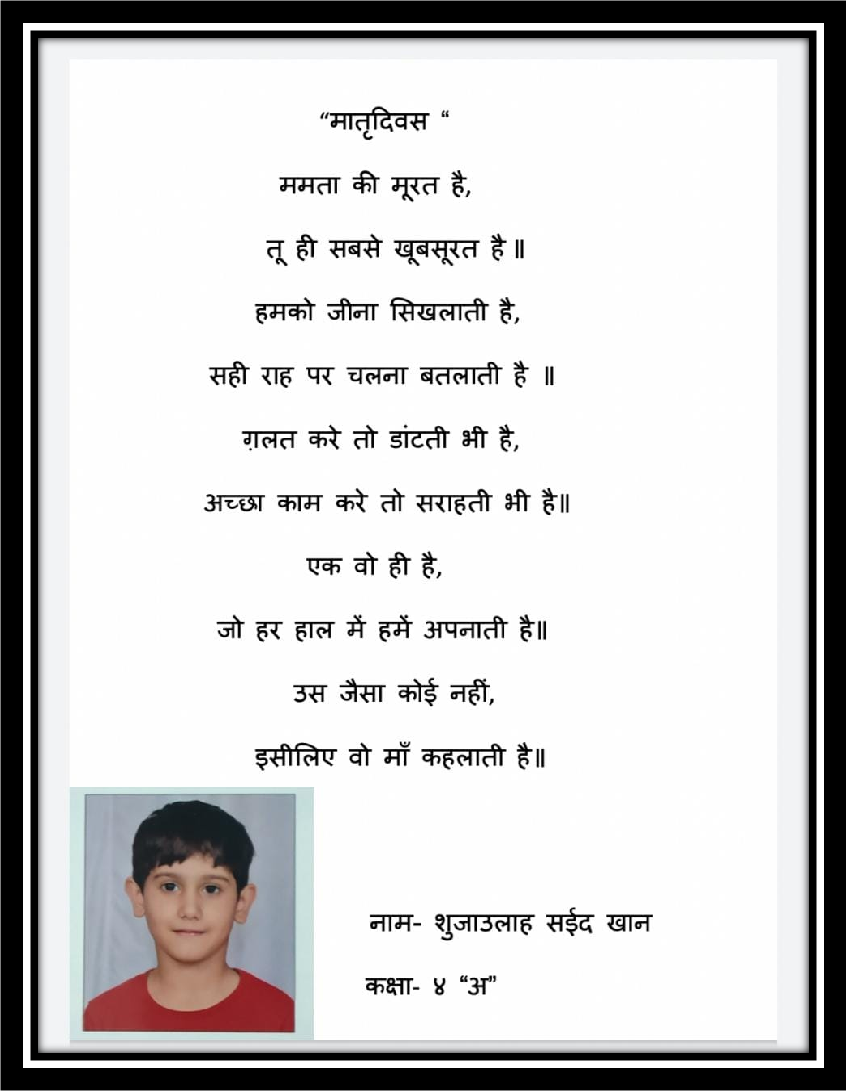 “मातृदिवस “
ममता की मूरत है,
तू ही सबसे खूबसूरत है॥
हमको जीना सिखलाती है,
सही राह पर चलना बतलाती है ॥
ग़लत करे तो डांटती भी है,
अच्छा काम करे तो सराहती भी है॥
एक वो ही है,
जो हर हाल में हमें अपनाती है॥
उस जैसा कोई नहीं,
इसीलिए वो माँ कहलाती है॥
नाम- शुजाउलाह सईद खान
कक्षा- ४ “अ”